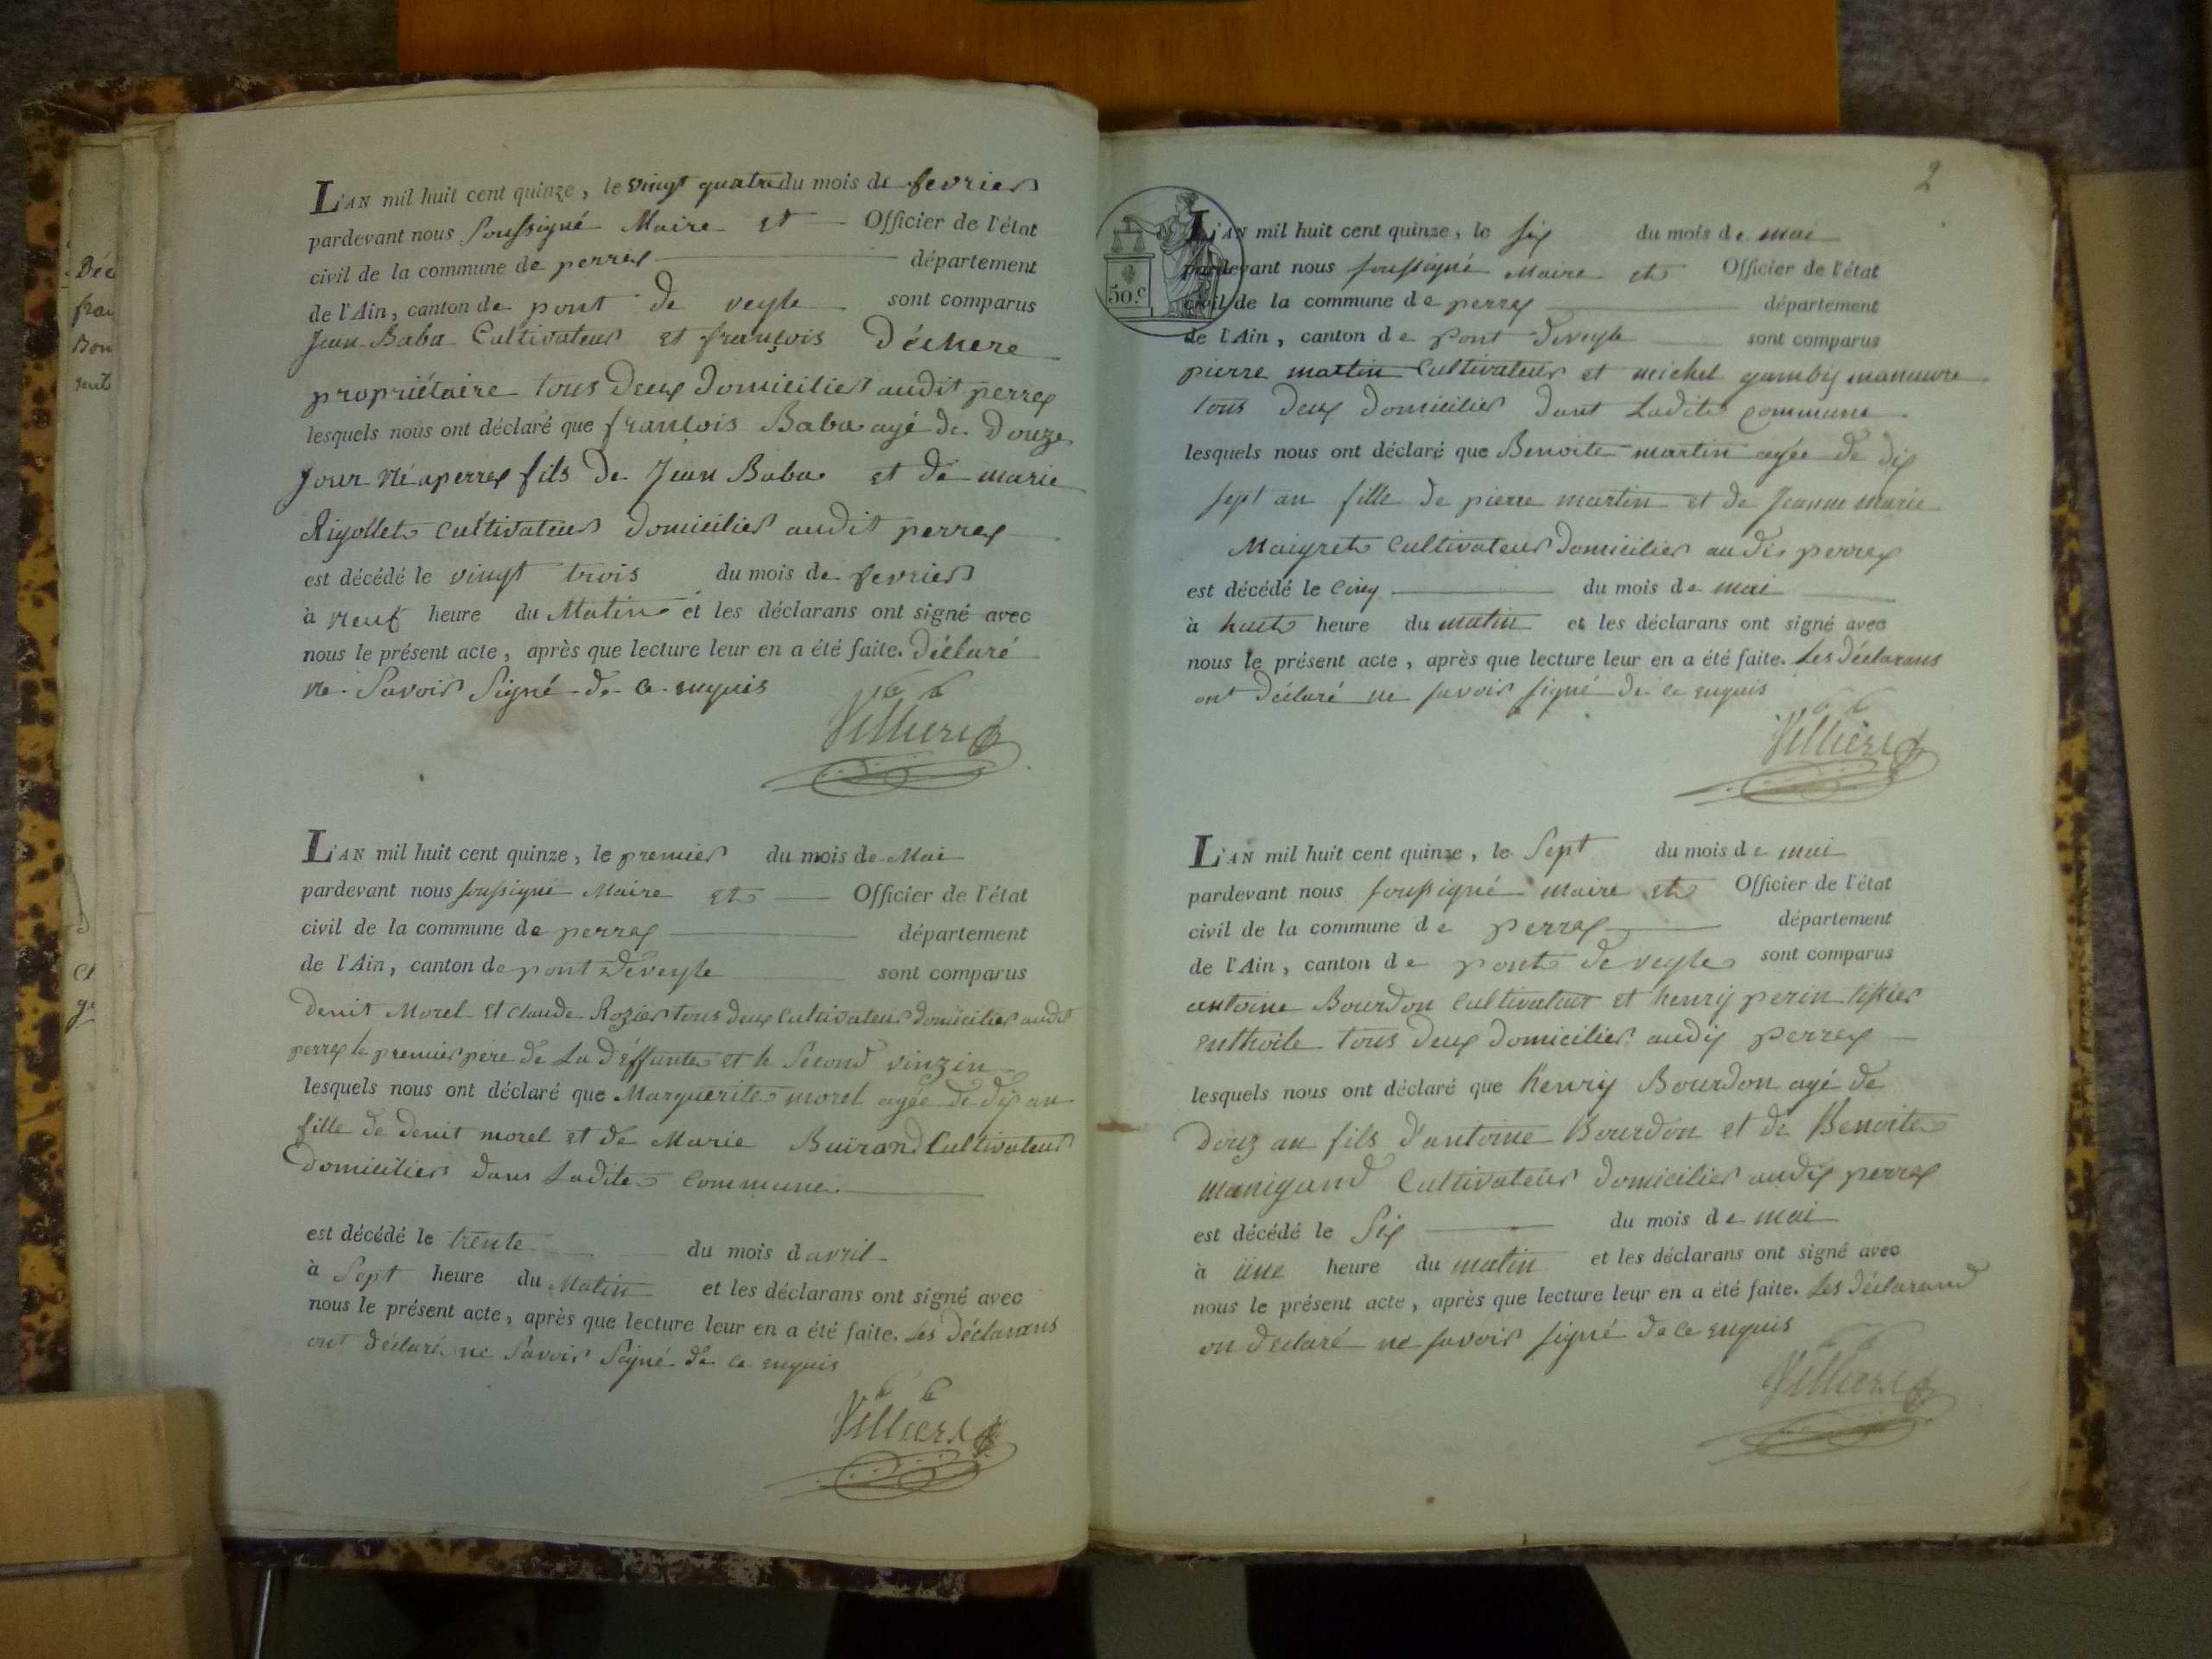 L'AN mil huit cent quinze, le vingt quatre du mois de fevrier
pardevant nous soussigné Maire et Officier de l'état
civil de la commune de perrex département
de l'Ain, canton de pont de veyle sont comparus
Jean Baba Cultivateur et françois Déchere
propriétaire tous deux domicilier audit perrex
lesquels nous ont déclaré que françois Baba agé de douze
jour né a perrex fils de Jean Baba et de marie
Rigollet cultivateur domicilier audit perrex
est décédé le vingt trois du mois de fevrier
à neuf heure du Matin et les déclarans ont signé avec
nous le présent acte, après que lecture leur en a été faite. déclaré
ne Savoir Signé de ce enquis
Villiere
L'AN mil huit cent quinze, le premier du mois de Mai
pardevant nous soussigné Maire et Officier de l'état
civil de la commune de perrex département
de l'Ain, canton de pont deveyle sont comparus
denit Morel et Claude Rozier tous deux Cultivateur domicilier audit
perrex le premier pere de La déffunte et le Second vinzin
lesquels nous ont déclaré que Marguerite morel agée de dix an
fille de denit morel et de Marie Buirand Cultivateur
domicilier dans Ladite Commune
est décédé le trente du mois d avril
à Sept heure du Matin et les déclarans ont signé avec
nous le présent acte, après que lecture leur en a été faite. Les déclarans
ont déclaré ne Savoir Signé de ce enquis
Villiere
2
50.c
L'AN mil huit cent quinze, le six du mois de mai
pardevant nous soussigné Maire et Officier de l'état
civil de la commune de perrex département
de l'Ain, canton de pont deveyle sont comparus
pierre martin Cultivateur et michel gamby manuvre
tous deux domicilier dant Ladite commune
lesquels nous ont déclaré que Benoite martin agée de dix
sept an fille de pierre martin et de Jeanne marie
Maigret Cultivateur domicilier au dis perrex
est décédé le Cinq du mois de mai
à huit heure du matin et les déclarans ont signé avec
nous le présent acte, après que lecture leur en a été faite. Les déclarans
ont déclaré ne savoir signé de ce enquis
Villiere
L'AN mil huit cent quinze, le Sept du mois de mai
pardevant nous soussigné maire et Officier de l'état
civil de la commune de perrex département
de l'Ain, canton de pont de veyle sont comparus
antoine Bourdon cultivateur et henry perin tissier
enthoile tous deux domicilier audis perrex
lesquels nous ont déclaré que henry Bourdon agé de
douz an fils d'antoine Bourdon et de Benoite
manigand Cultivateur domicilier audis perrex
est décédé le Six du mois de mai
à üne heure du matin et les déclarans ont signé avec
nous le présent acte, après que lecture leur en a été faite. Les déclarand
on declaré ne savoir signé de ce enquis
Villiere